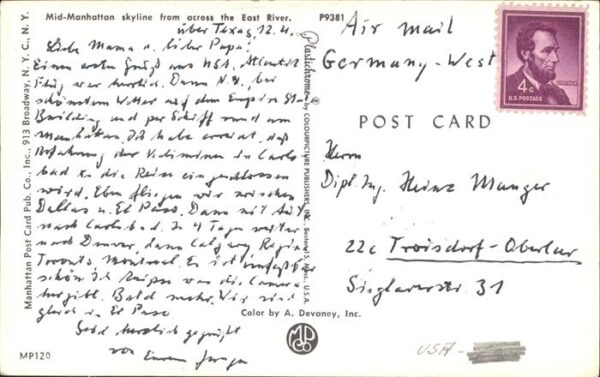 Mid-Manhattan skyline from across the East River.
P9381
über Texas, 12.4.
Liebe Mama u. lieber Papa!
Einen ersten Gruß aus USA. Atlantik
Flug war herrlich. Dann N.Y., bei
schönstem Wetter auf dem Empire St.
Building und per Schiff rund um
Manhattan. Ich habe erreicht, daß
Befahrung der Kaliminen in Carls
bad in die Reise eingeschlossen
wird. Eben fliegen wir zwischen
Dallas u. El Paso. Dann mit Auto
nach Carlsbad. In 4 Tagen weiter
nach Denver, dann Calgary, Regina
Toronto Montreal. Es ist
schön. Ich was die Camera
hergibt. Bald mehr. Wir sind
gleich in El Paso
Seid herzlich gegrüßt
von Eurem
MP120
Manhattan Post Card Pub. Co., Inc., 913 Broadway, N. Y. C., N. Y.
Plastichrome ® by COLOURPICTURE PUBLISHERS, INC., Boston 15, Mass., U.S.A.
Color by A. Devaney, Inc.
MPCo
Air mail
Germany-West
4¢
U.S. POSTAGE
LINCOLN
POST CARD
Herrn
Dipl. Ing. Heinz Manger
22c Troisdorf-Oberlar
Sieglarerstr 31
USA-